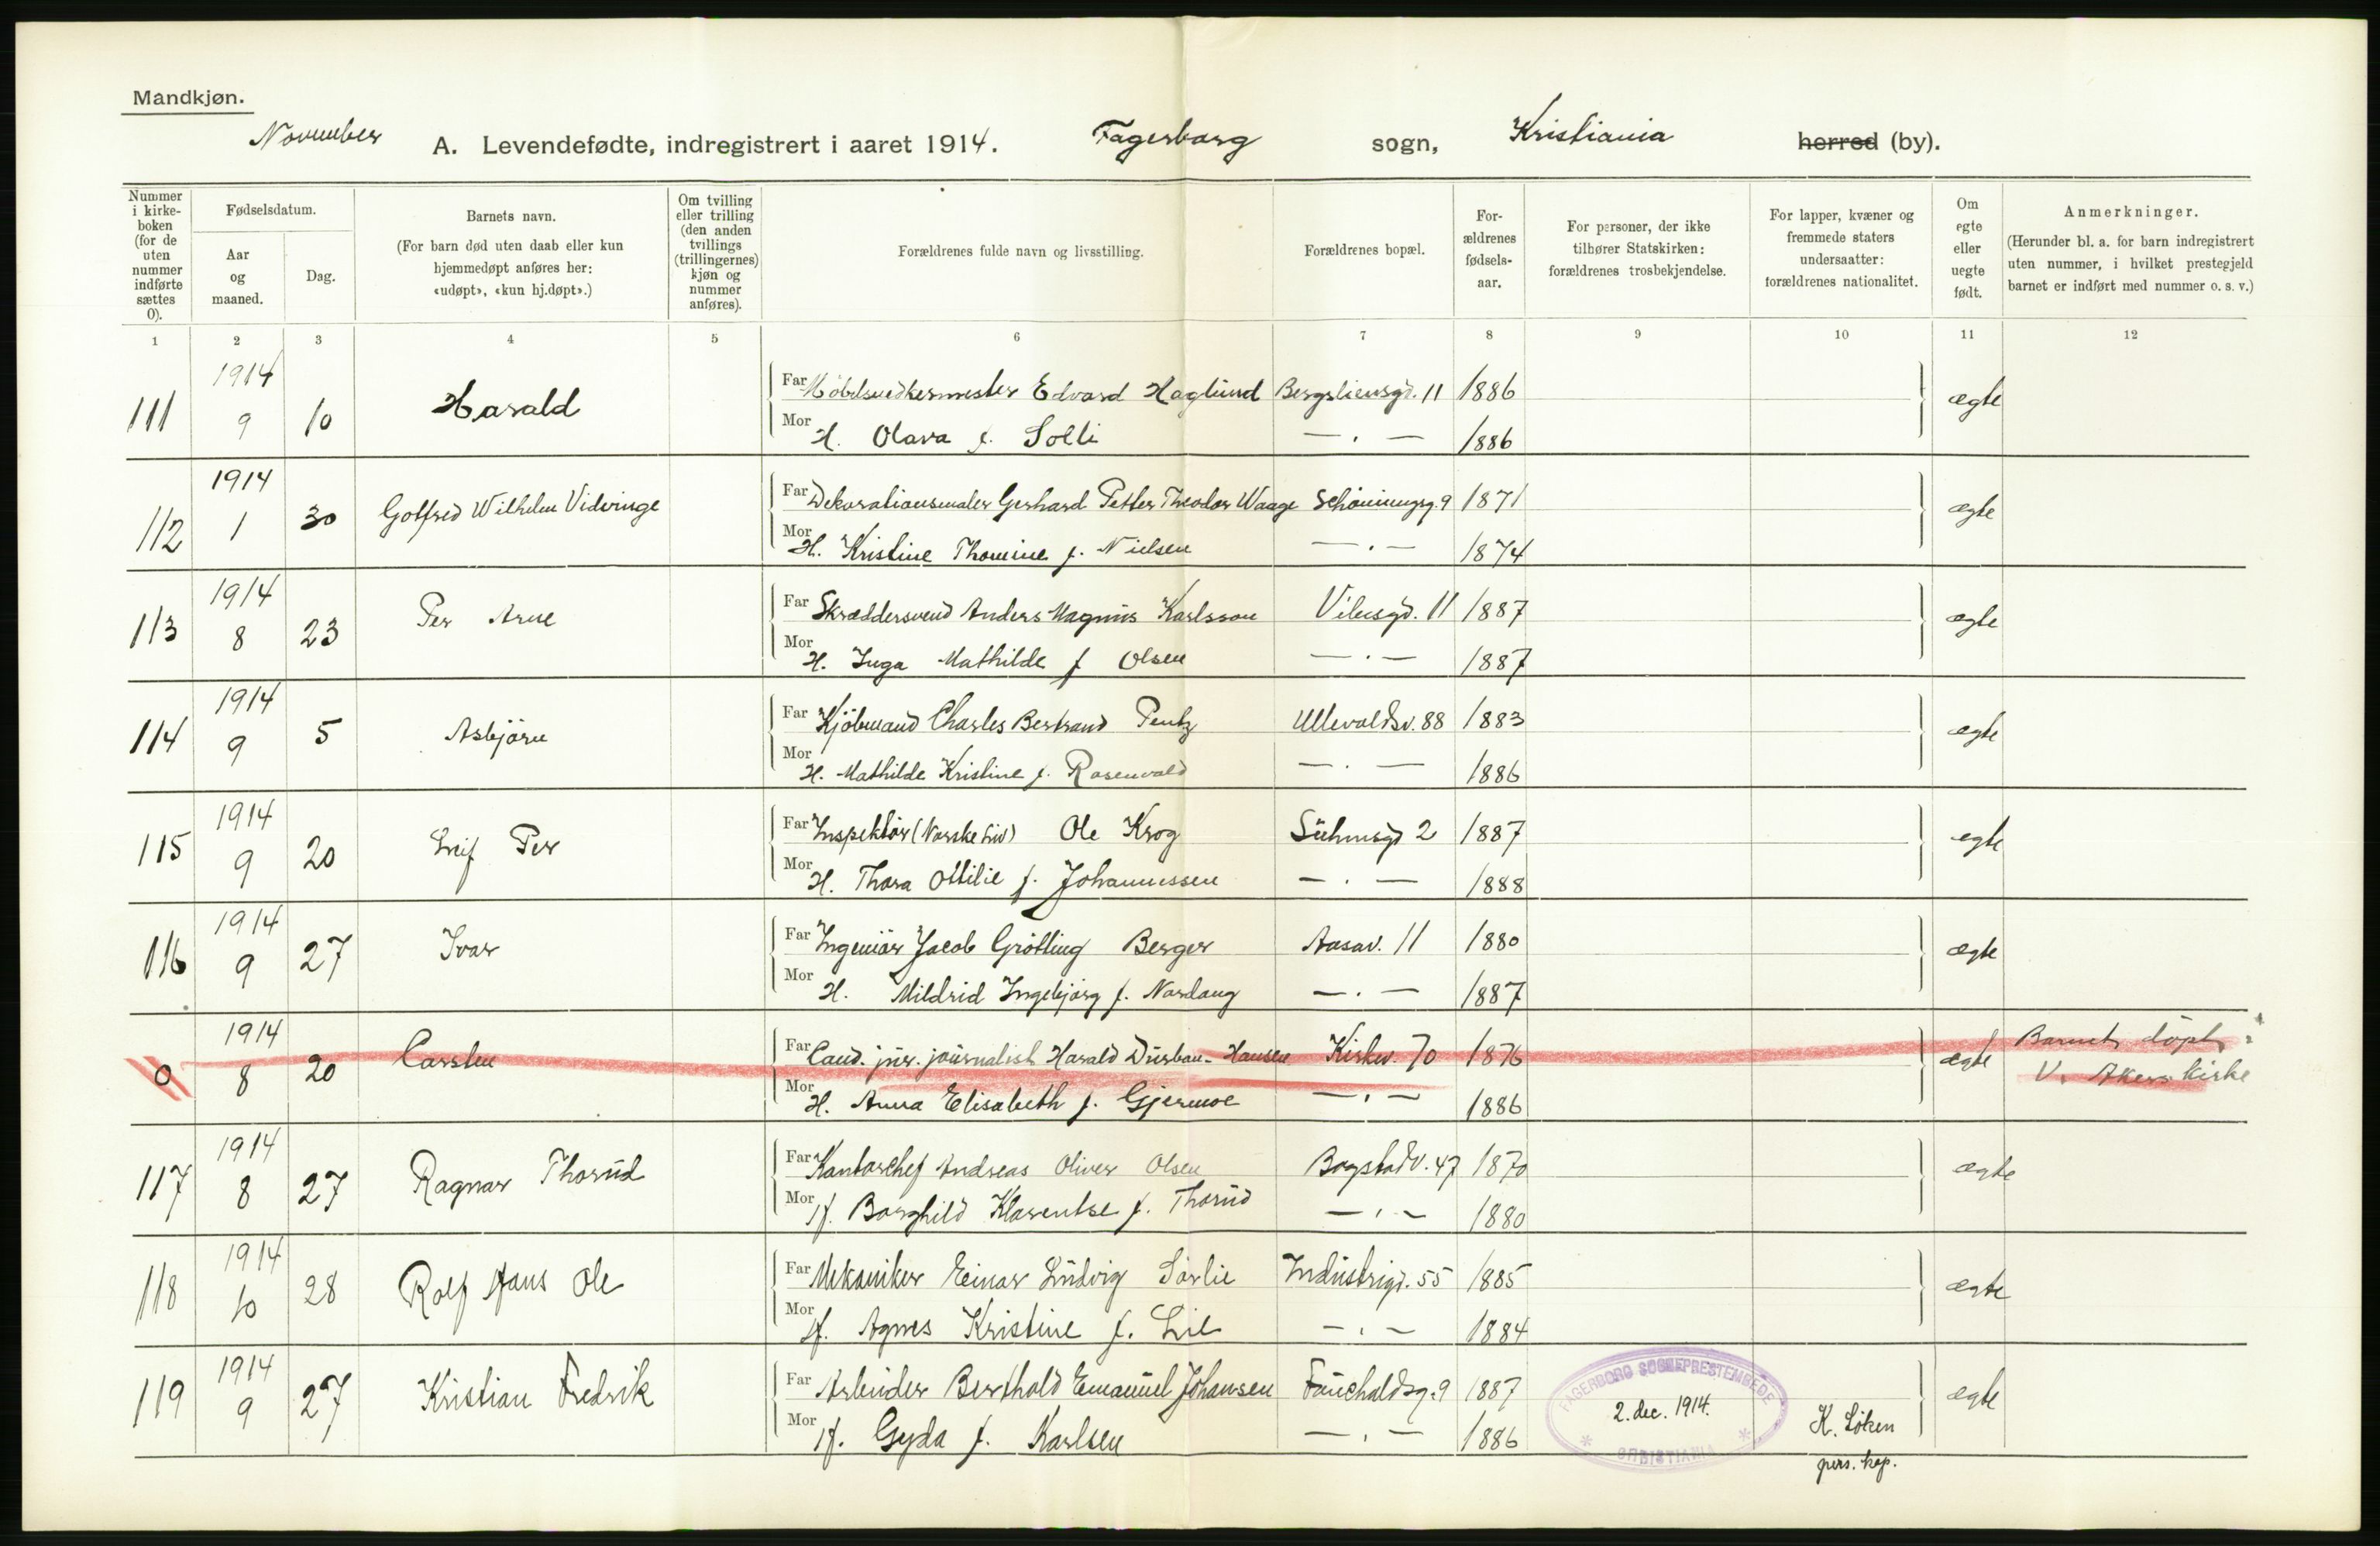 Mandkjøn.
November A. Levendefødte, indregistrert i aaret 1914. Fagerborg sogn, Kristiania herred (by).
Nummer i kirke-boken (for de uten nummer indførte sættes 0).
Fødselsdatum.
Aar og maaned.
Dag.
Barnets navn.
(For barn død uten daab eller kun hjemmedøpt anføres her: «udøpt», «kun hj.døpt».)
Om tvilling eller trilling (den anden tvillings (trillingernes) kjøn og nummer anføres).
Forældrenes fulde navn og livsstilling.
Forældrenes bopæl.
For-ældrenes fødsels-aar.
For personer, der ikke tilhører Statskirken: forældrenes trosbekjendelse.
For lapper, kvæner og fremmede staters undersaatter: forældrenes nationalitet.
Om egte eller uegte født.
Anmerkninger.
(Herunder bl. a. for barn indregistrert uten nummer, i hvilket prestegjeld barnet er indført med nummer o. s. v.)
1 2 3 4 5 6 7 8 9 10 11 12
111 1914 9 10 Harald Far Möbelsnedkermester Edvard Haglund Bergsliensgd. 11 1886 ægte
Mor H. Olava f. Solli — . — 1886
112 1914 1 30 Gotfred Wilhelm Vidvinge Far Dekorationsmaler Gerhard Petter Theodor Waage Schöningsg. 9 1871 ægte
Mor H. Kristine Thomine f. Nielsen — . — 1874
113 1914 8 23 Per Arne Far Skræddersvend Anders Magnus Karlsson Vibesgd. 11 1887 ægte
Mor H. Inga Mathilde f Olsen — . — 1887
114 1914 9 5 Asbjörn Far Kjöbmand Charles Bertrand Pentz Ullevoldsv. 88 1883 ægte
Mor H. Mathilde Kristine f. Rosenvold — . — 1886
115 1914 9 20 Leif Per Far Inspektör (Norske Liv) Ole Krog Suhmsgd 2 1887 egte
Mor H. Thora Ottilie f. Johannessen — . — 1888
116 1914 9 27 Ivar Far Ingeniör Jacob Grötting Berger Aasav. 11 1880 ægte
Mor H. Mildrid Ingebjørg f. Nordang — . — 1887
0 1914 8 20 Carsten Far Cand. jur. journalist Harald Durban-Hansen Kirkev. 70 1876 ægte Barnet döpt i
Mor H. Anna Elisabeth f. Gjermoe — . — 1886 V. Akers kirke
117 1914 8 27 Ragnar Thorud Far Kontorchef Andreas Oliver Olsen Bogstadv. 47 1870 ægte
Mor H. Borghild Klarentse f. Thorud — . — 1880
118 1914 10 28 Rolf Hans Ole Far Mekaniker Einar Ludvig Sörlie Industrigd. 55 1885 ægte
Mor H. Agnes Kristine f. Lie — . — 1884
119 1914 9 27 Kristian Fredrik Far Arbeider Berthold Emanuel Johansen Fauchaldsg. 9 1887 ægte
Mor H. Gyda f. Karlsen — . — 1886
FAGERBORG SOGNEPRESTEMBEDE
2. dec. 1914.
CHRISTIANIA
K. Löken
pers. kap.